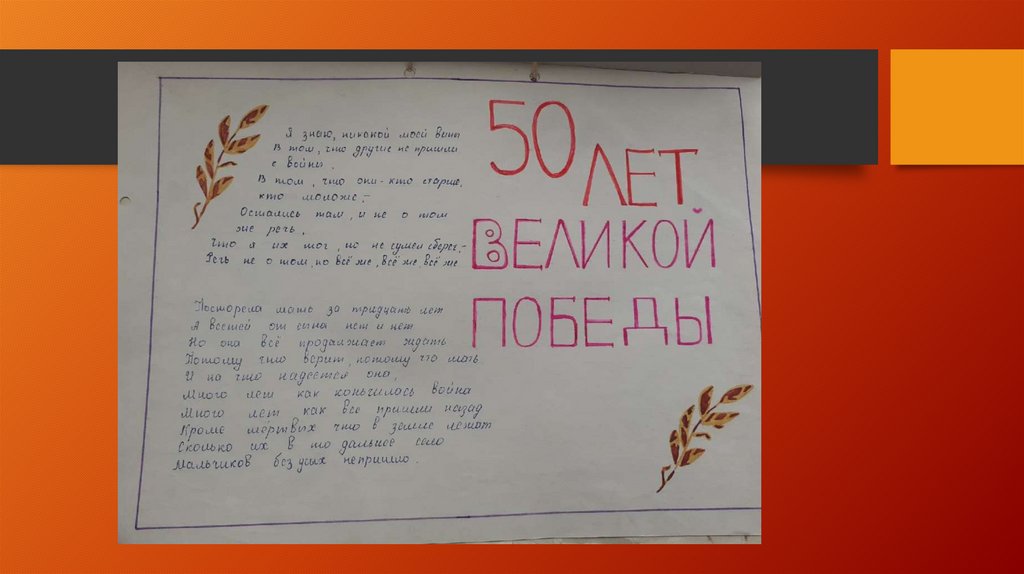 Я знаю, никакой моей вины
В том, что другие не пришли
с войны.
В том, что они - кто старше,
кто моложе,-
Остались там, и не о том
же речь,
Что я их мог, но не сумел сберечь,-
Речь не о том, но всё же, всё же, всё же
50
ЛЕТ
ВЕЛИКОЙ
ПОБЕДЫ
Постарела мать за тридцать лет
А вестей от сына нет и нет
Но она всё продолжает ждать
Потому что верит, потому что мать.
И на что надеется она,
Много лет как кончилась война
Много лет как все пришли назад
Кроме мёртвых что в земле лежат
Сколько их в то дальнее село
Мальчиков безусых непришло.